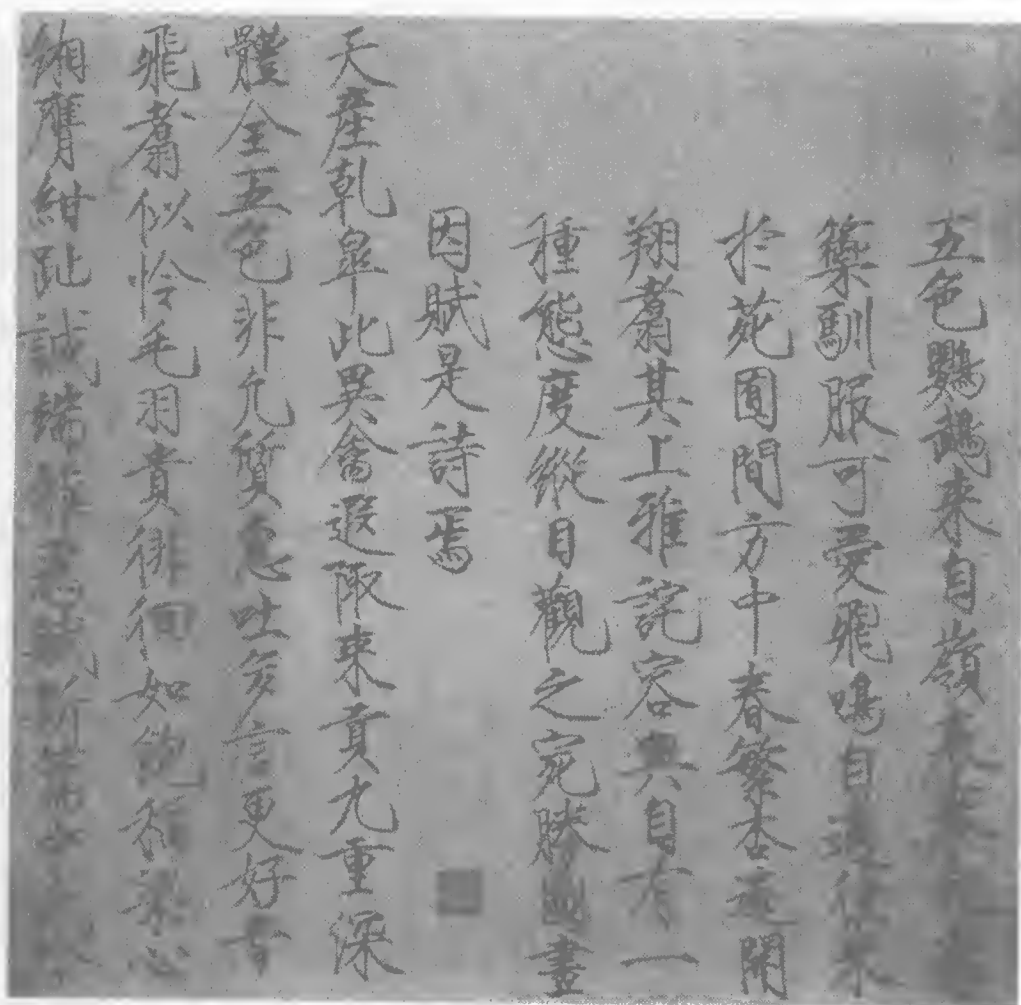 五色鸚䳇来自嶺表養
籞馴服可愛飛鳴自適往来
於苑囿間方中春繁杏遍開
翔翥其上雅詫容與自有一
種態度縱目觀之宛勝圖畫
因賦是詩焉
天產乾皋此異禽遐陬来貢九重深
體全五色非凡質惠吐多言更好音
飛翥似怜毛羽貴徘徊如飽稻粱心
緗膺紺趾誠端雅為賦新篇步